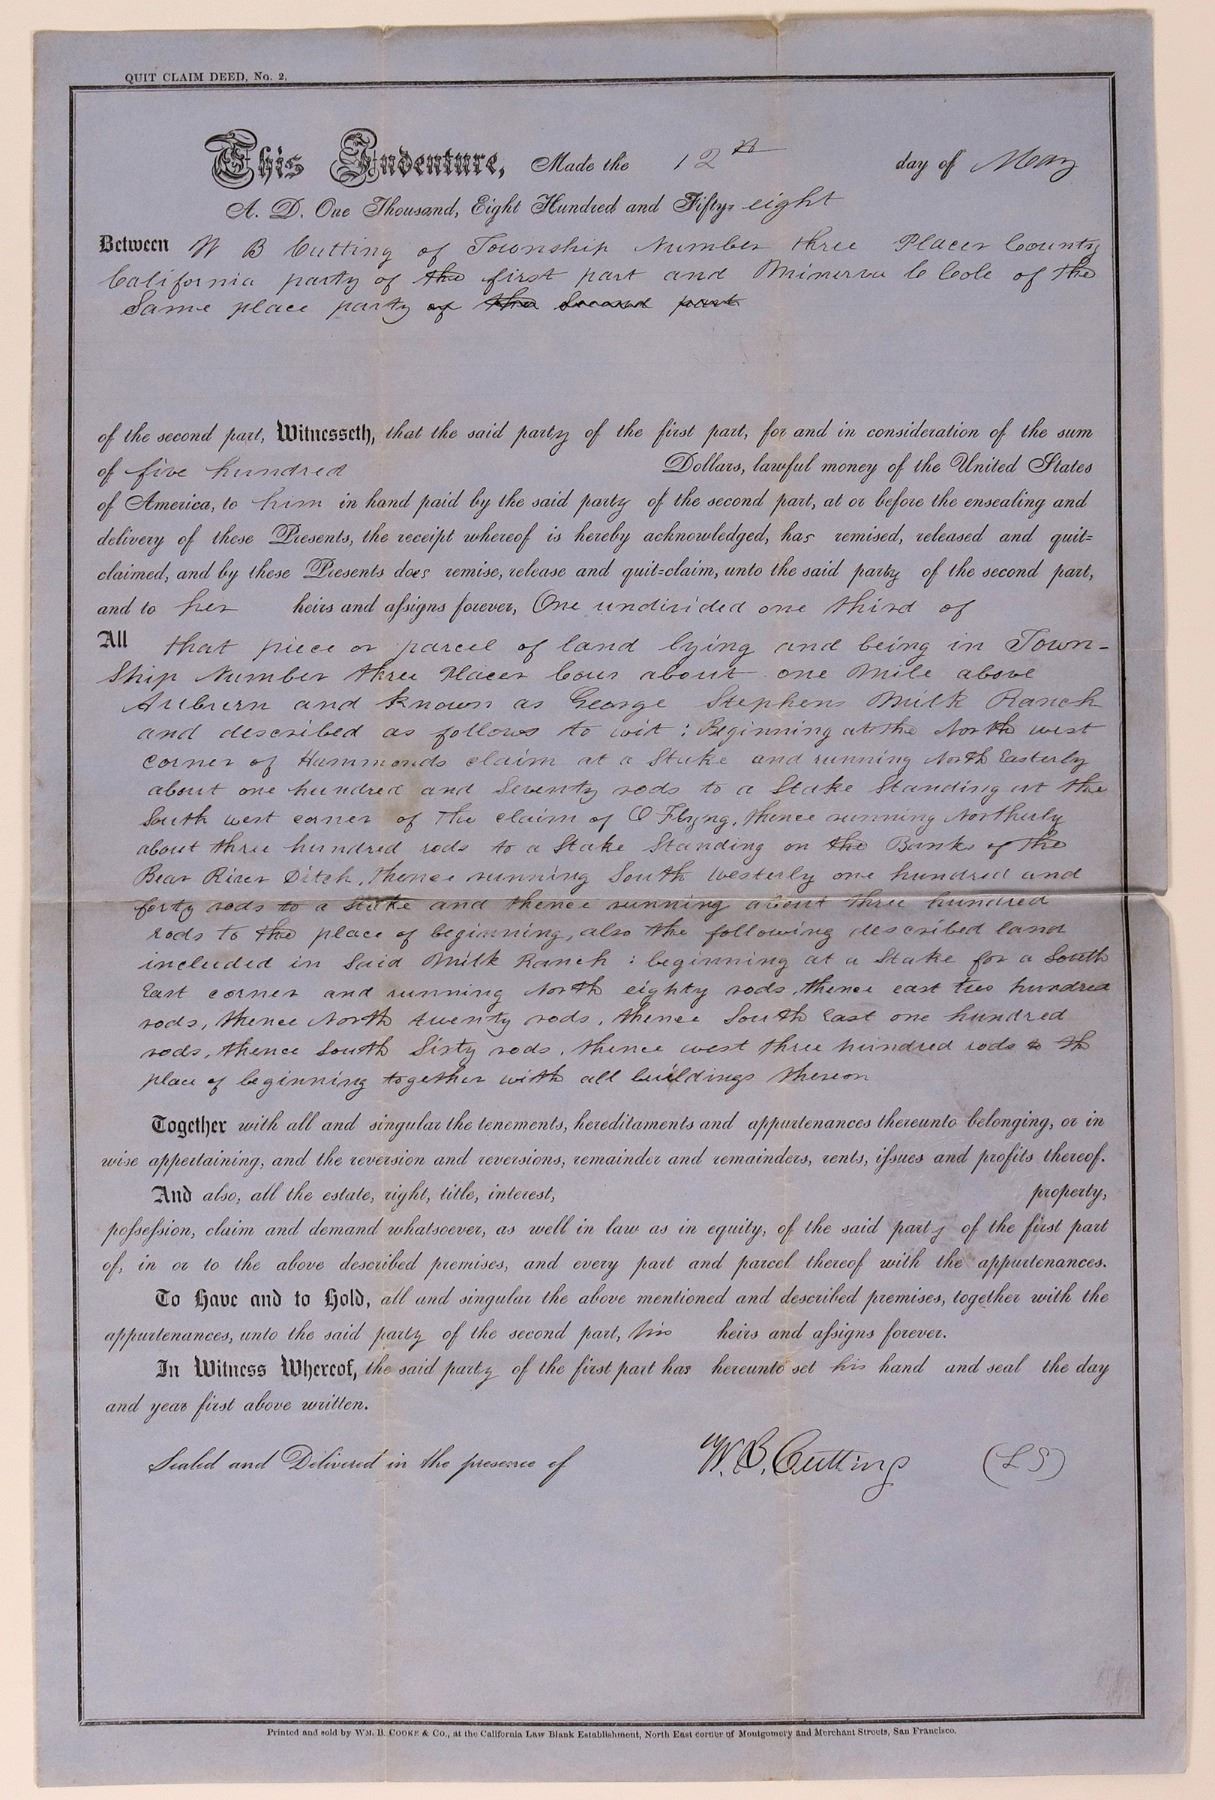 QUIT CLAIM DEED, No. 2.
This Indenture, Made the 12th day of May
A. D. One Thousand, Eight Hundred and Fifty-eight
Between W B Cutting of Township Number three Placer County
California party of the first part and Minerva C Cole of the
Same place party of the second part
of the second part, Witnesseth, that the said party of the first part, for and in consideration of the sum
of five hundred Dollars, lawful money of the United States
of America, to him in hand paid by the said party of the second part, at or before the ensealing and
delivery of these Presents, the receipt whereof is hereby acknowledged, has remised, released and quit=
claimed, and by these Presents does remise, release and quit=claim, unto the said party of the second part,
and to her heirs and assigns forever, One undivided one third of
All that piece or parcel of land lying and being in Town-
Ship Number three Placer Coun about one Mile above
Auburn and known as George Stephens Milk Ranch
and described as follows to wit: Beginning at the North west
corner of Hammonds claim at a Stake and running North Easterly
about one hundred and Seventy rods to a Stake Standing at the
South west corner of The claim of O Flyng, thence running Northerly
about three hundred rods to a Stake Standing on the Banks of the
Bear River Ditch, thence running South westerly one hundred and
forty rods to a Stake and thence running about three hundred
rods to the place of beginning, also the following described land
included in Said Milk Ranch: beginning at a Stake for a South
East corner and running North eighty rods, thence east two hundred
rods, thence North twenty rods, thence South East one hundred
rods, thence South Sixty rods, thence west three hundred rods to th
place of beginning together with all buildings thereon
Together with all and singular the tenements, hereditaments and appurtenances thereunto belonging, or in
wise appertaining, and the reversion and reversions, remainder and remainders, rents, issues and profits thereof.
And also, all the estate, right, title, interest, property,
possession, claim and demand whatsoever, as well in law as in equity, of the said party of the first part
of, in or to the above described premises, and every part and parcel thereof with the appurtenances.
To Have and to Hold, all and singular the above mentioned and described premises, together with the
appurtenances, unto the said party of the second part, his heirs and assigns forever.
In Witness Whereof, the said party of the first part has hereunto set his hand and seal the day
and year first above written.
Sealed and Delivered in the presence of W. B. Cutting (L S)
Printed and sold by WM. B. COOKE & CO., at the California Law Blank Establishment, North East corner of Montgomery and Merchant Streets, San Francisco.